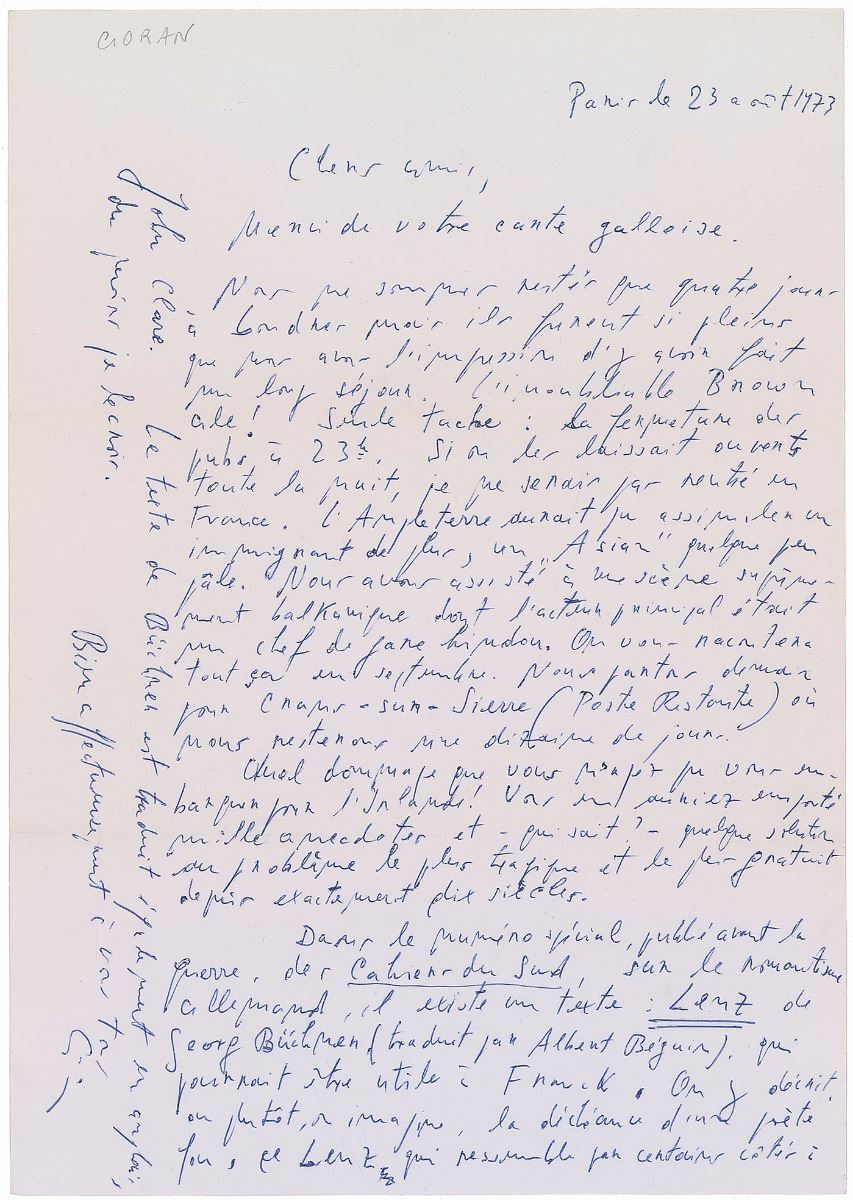 CIORAN
Paris le 23 août 1973
Chers amis,
Merci de votre carte galloise.
Nous ne sommes restés que quatre jours
à Londres mais ils furent si pleins
que nous avons l'impression d'y avoir fait
un long séjour. L'inoubliable Brown
ale! Seule tache : la fermeture des
pubs à 23h. Si on les laissait ouverts
toute la nuit, je ne serais pas rentré en
France. L'Angleterre aurait pu assimiler un
immigrant de plus, un „Asian" quelque peu
pâle. Nous avons assisté à une scène suprême-
ment balkanique dont l'acteur principal était
un chef de gare hindou. On vous racontera
tout ça en septembre. Nous partons demain
pour Crans-sur-Sierre (Poste Restante) où
nous resterons une dizaine de jours.
Quel dommage que vous n'ayez pu vous em-
barquer pour l'Irlande! Vous en auriez emporté
mille anecdotes et - qui sait? - quelque solution
au problème le plus tragique et le plus gratuit
depuis exactement dix siècles.
Dans le numéro spécial, publié avant la
guerre, des Cahiers du Sud, sur le romantisme
allemand, il existe un texte : Lenz de
Georg Büchner (traduit par Albert Béguin), qui
pourrait être utile à Franck. On y décrit,
ou plutôt, on imagine, la déchéance d'un poète
fou, ce Lenz qui ressemble par certains côtés à
John Clare. Le texte de Büchner est traduit également en anglais,
du moins je le crois.
Bien affectueusement à vous tous